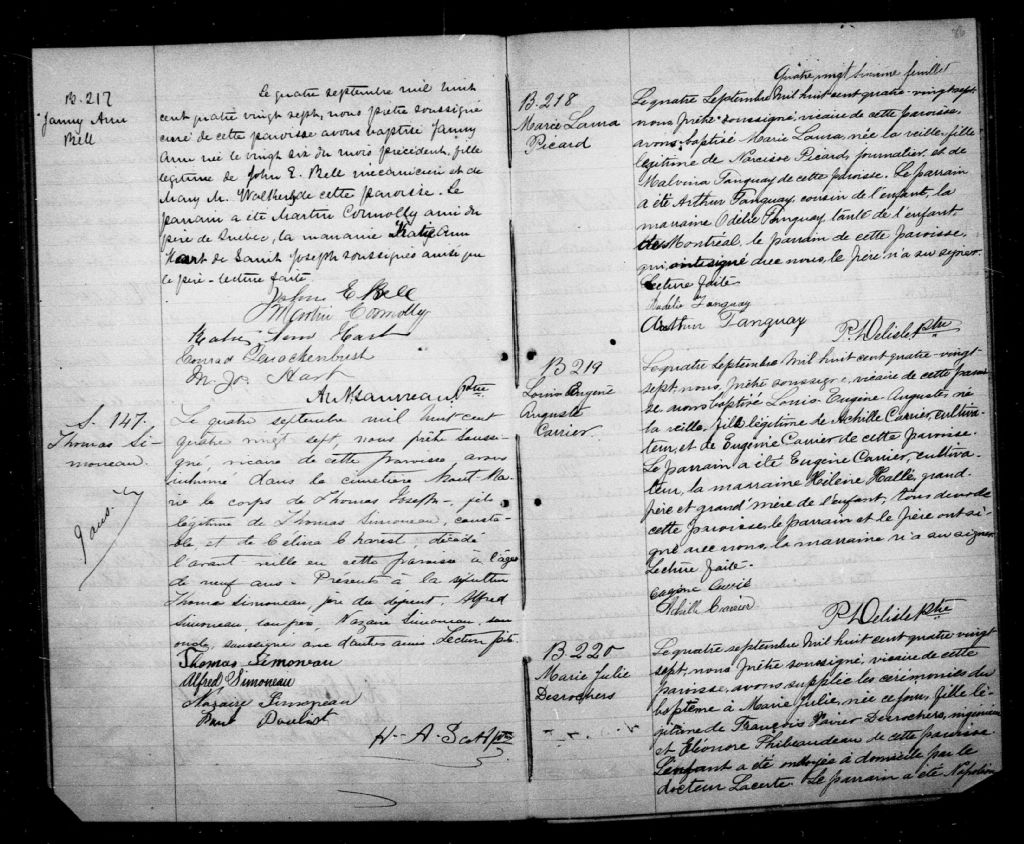 B. 217
Fanny Ann
Bell
Le quatre septembre mil huit
cent quatre vingt sept, nous prêtre soussigné
curé de cette paroisse avons baptisé Fanny
Ann née le vingt six du mois précédent, fille
légitime de John E. Bell mecanicien et de
Mary M. de cette paroisse. Le
parrain a été Martin Connolly ami du
père de Quebec, la marraine Katy Ann
Hart de Saint Joseph soussignés ainsi que
le père - lecture faite
John E Bell
Martin Connolly
Katie Ann Hart
Conrad
M. Jos. Hart
Ptre
S. 147.
Thomas Si-
moneau.
9 ans.
Le quatre septembre mil huit cent
quatre vingt sept, nous prêtre soussi-
gné, vicaire de cette paroisse avons
inhumé dans le cimetière Mont-Ma-
rie le corps de Thomas Joseph, fils
légitime de Thomas Simoneau, consta-
ble, et de Celina Charest, décédé
l'avant veille en cette paroisse à l'âge
de neuf ans. Présents à la sépulture
Thomas Simoneau, père du défunt, Alfred
Simoneau, son frère, Nazaire Simoneau, son
oncle, soussignés avec d'autres amis. Lecture faite.
Thomas Simoneau
Alfred Simoneau
Nazaire Simoneau
Paul
H. A. Scott ptre
86
Quatre vingt sixième feuillet
B. 218
Marie Laura
Picard
Le quatre Septembre Mil huit cent quatre-vingt sept
nous Prêtre soussigné, vicaire de cette Paroisse,
avons baptisé Marie Laura, née la veille, fille
légitime de Narcisse Picard, journalier, et de
Malvina Tanguay de cette paroisse. Le parrain
a été Arthur Tanguay, cousin de l'enfant, la
marraine Odélie Tanguay, tante de l'enfant,
de Montréal, le parrain de cette paroisse,
qui, ont signé avec nous, le père n'a su signer.
Lecture faite
Audélie Tanguay
Arthur Tanguay
P. Delisle Ptre
B 219
Louis Eugène
Auguste
Carrier.
Le quatre Septembre Mil huit cent quatre-vingt-
sept, nous, Prêtre soussigné, vicaire de cette parois-
se, avons baptisé Louis-Eugène-Auguste, né
la veille, fils légitime de Achille Carrier, cultiva-
teur, et de Eugénie Carrier de cette Paroisse.
Le parrain a été Eugène Carrier, cultiva-
teur, la marraine Hélène Hallé, grand-
père et grand'mère de l'enfant, tous deux de
cette paroisse, le parrain et le père ont si-
gné avec nous, la marraine n'a su signer.
Lecture faite.
Eugène
Achille Carrier
P. Delisle Ptre
B 220
Marie Julie
Desrochers
Le quatre septembre Mil huit cent quatre vingt
sept, nous Prêtre soussigné, vicaire de cette
paroisse, avons suppléé les cérémonies du
baptême à Marie Julie, née ce jour, fille lé-
gitime de François Xavier Desrochers, ingénieur
et Eléonore Thibeaudeau de cette paroisse.
L'enfant a été ondoyée à domicile par le
docteur Lacerte. Le parrain a été Napoléon